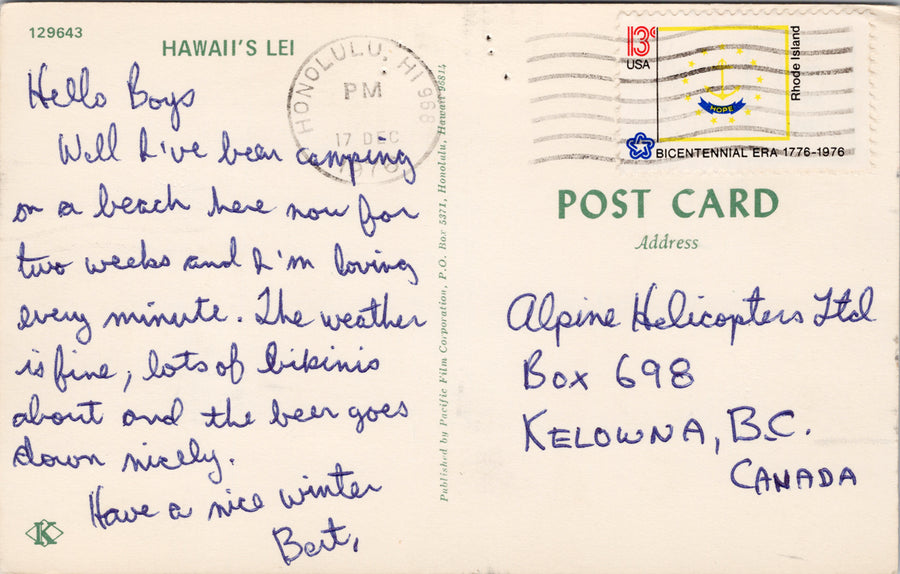 129643
HAWAII'S LEI
Hello Boys
Well I've been camping
on a beach here now for
two weeks and I'm loving
every minute. The weather
is fine, lots of bikinis
about and the beer goes
down nicely.
Have a nice winter
Bert,
K
HONOLULU, HI 968
PM
17 DEC
Published by Pacific Film Corporation, P.O. Box 5371, Honolulu, Hawaii 96814
13c
USA
HOPE
Rhode Island
BICENTENNIAL ERA 1776-1976
POST CARD
Address
Alpine Helicopters Ltd
Box 698
KELOWNA, B.C.
CANADA